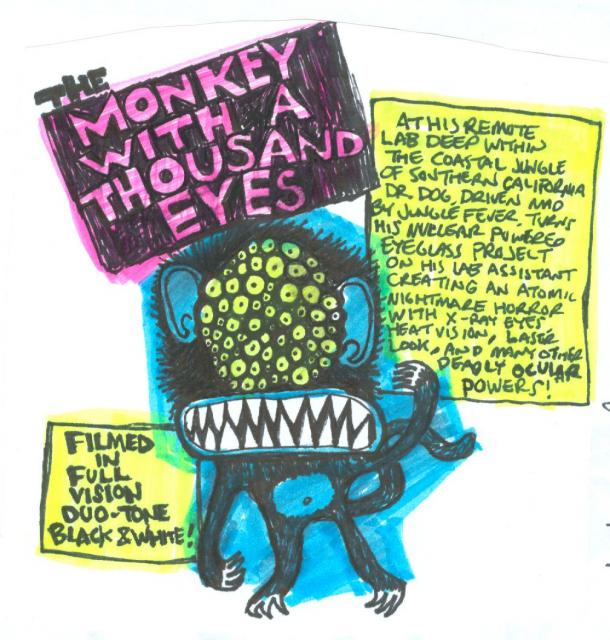 THE
MONKEY
WITH A
THOUSAND
EYES
AT HIS REMOTE
LAB DEEP WITHIN
THE COASTAL JUNGLE
OF SOUTHERN CALIFORNIA
DR. DOG, DRIVEN MAD
BY JUNGLE FEVER TURNS
HIS NUCLEAR POWERED
EYEGLASS PROJECT
ON HIS LAB ASSISTANT
CREATING AN ATOMIC
NIGHTMARE HORROR
WITH X-RAY EYES
HEAT VISION, LASER
LOOK, AND MANY OTHER
DEADLY OCULAR
POWERS!
FILMED
IN
FULL
VISION
DUO-TONE
BLACK & WHITE!